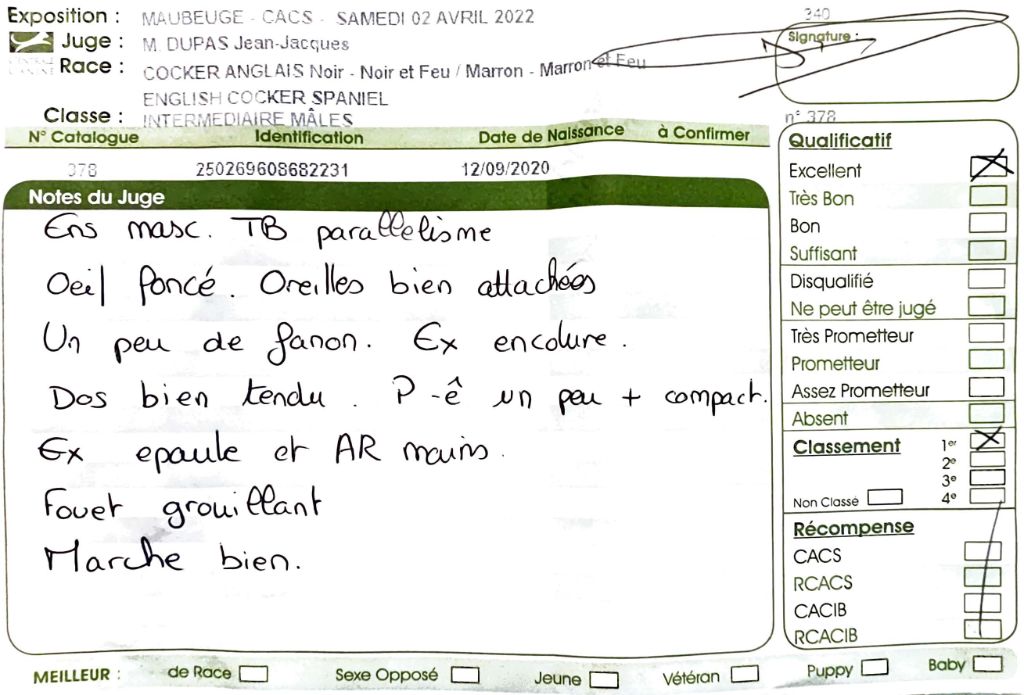 Exposition : MAUBEUGE - CACS - SAMEDI 02 AVRIL 2022
340
Juge : M. DUPAS Jean-Jacques
Signature :
Race : COCKER ANGLAIS Noir - Noir et Feu / Marron - Marron et Feu
ENGLISH COCKER SPANIEL
Classe : INTERMEDIAIRE MÂLES
n° 378
N° Catalogue Identification Date de Naissance à Confirmer
378 250269608682231 12/09/2020
Notes du Juge
Ens masc. TB parallelisme
Oeil foncé. Oreilles bien attachées
Un peu de fanon. Ex encolure.
Dos bien tendu. P-ê un peu + compact.
Ex epaule et AR mains.
Fouet grouillant
Marche bien.
Qualificatif
Excellent
Très Bon
Bon
Suffisant
Disqualifié
Ne peut être jugé
Très Prometteur
Prometteur
Assez Prometteur
Absent
Classement 1er
2e
3e
Non Classé 4e
Récompense
CACS
RCACS
CACIB
RCACIB
MEILLEUR : de Race Sexe Opposé Jeune Vétéran Puppy Baby